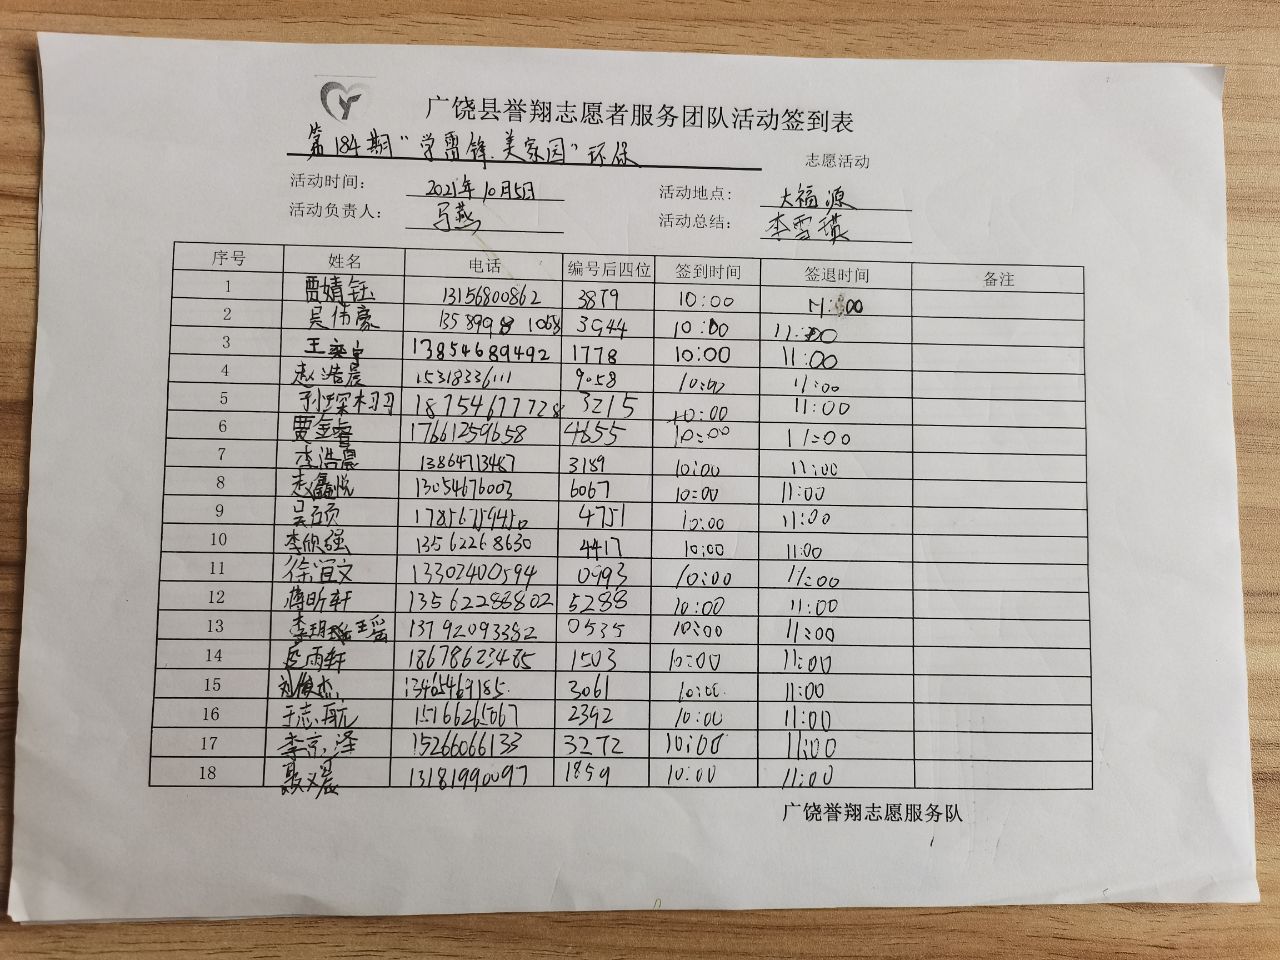 广饶县誉翔志愿者服务团队活动签到表
第184期"学雷锋.美家园"环保 志愿活动
活动时间: 2021年10月5日 活动地点: 大福源
活动负责人: 马燕 活动总结: 李雪瑛
序号 姓名 电话 编号后四位 签到时间 签退时间 备注
1 贾婧钰 13156800862 3879 10:00 11:00
2 吴伟豪 3944 10:00 11:00
3 王奕宁 13854689492 1778 10:00 11:00
4 赵浩晨 15318336111 9058 10:00 11:00
5 18754677728 3215 10:00 11:00
6 贾金睿 17661259658 4655 10:00 11:00
7 李浩晨 13864713487 3189 10:00 11:00
8 赵鑫悦 13054676003 6067 10:00 11:00
9 吴硕 4751 10:00 11:00
10 李欣强 13562268630 4417 10:00 11:00
11 徐谊文 13302400594 0993 10:00 11:00
12 蒋昕轩 13562288802 5288 10:00 11:00
13 13792093382 0535 10:00 11:00
14 18678623485 1503 10:00 11:00
15 刘俊杰 13465469185 3061 10:00 11:00
16 于志航 15166265067 2392 10:00 11:00
17 李京泽 15266066133 3272 10:00 11:00
18 聂义晨 13181990097 1859 10:00 11:00
广饶誉翔志愿服务队